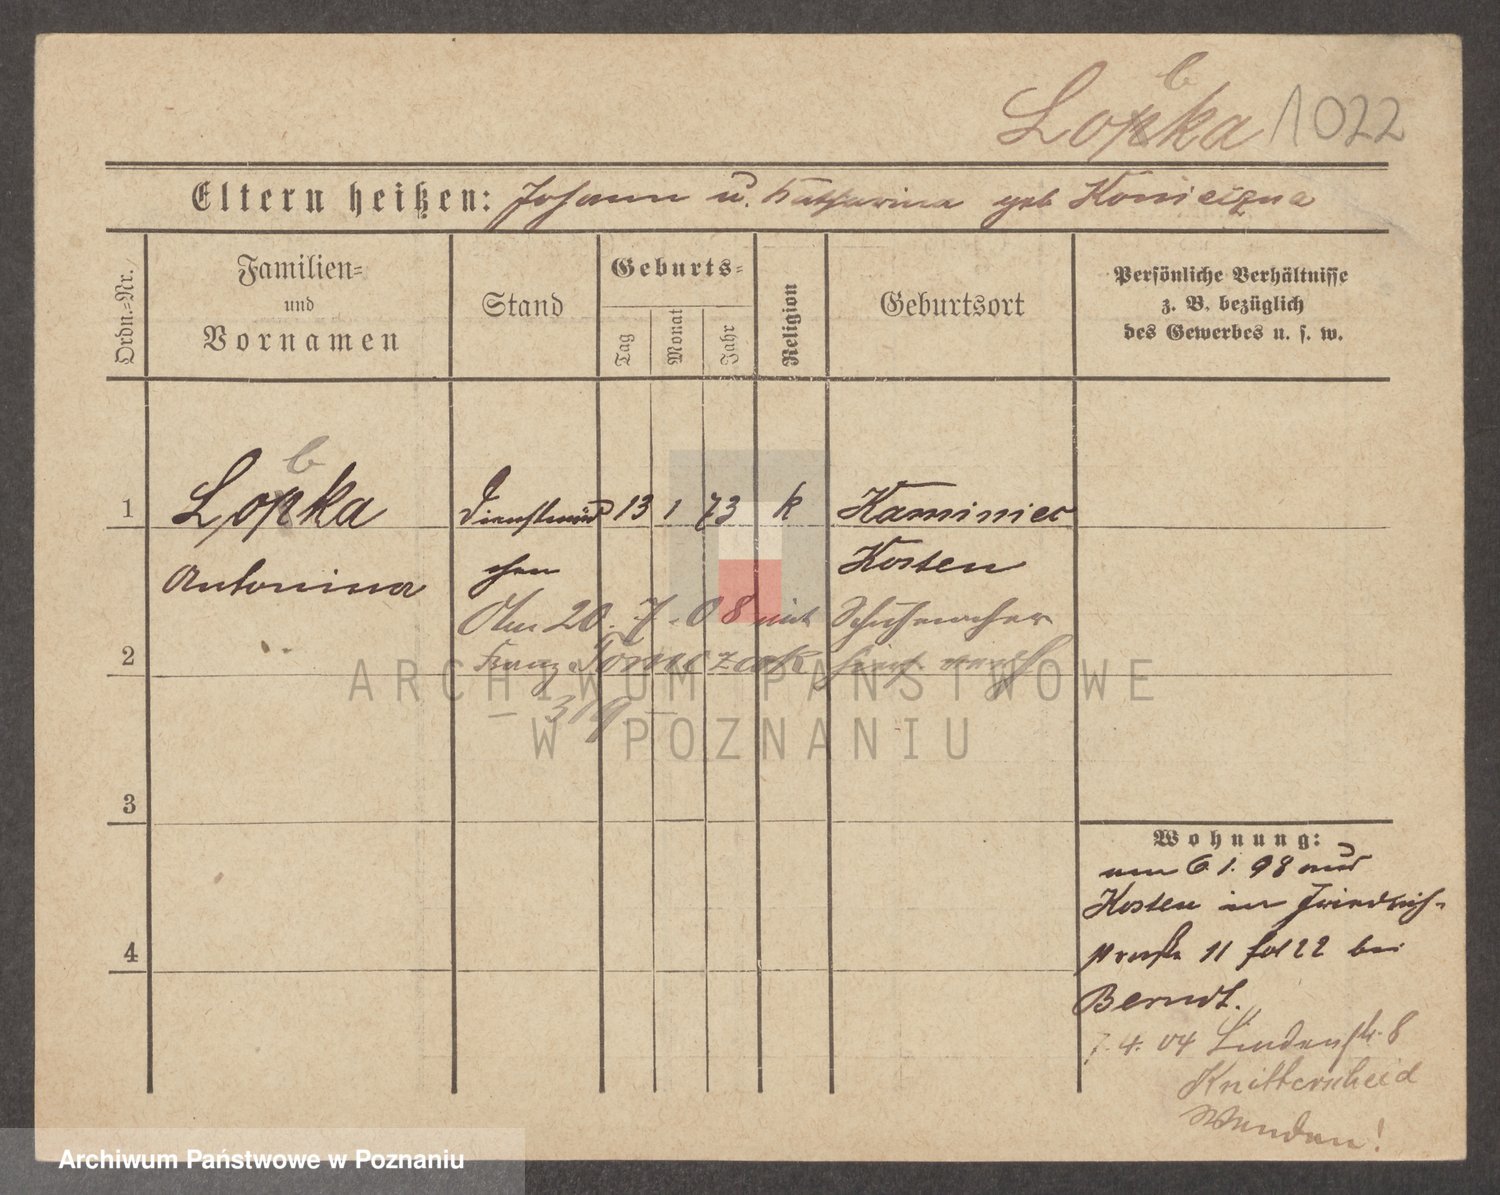 b
Lopka 1022
Eltern heißen: Johann u. Katharina geb Konieczna
Ordn.-Nr.
Familien-
und
Vornamen
Stand
Geburts-
Tag
Monat
Jahr
Religion
Geburtsort
Persönliche Verhältnisse
z. B. bezüglich
des Gewerbes u. s. w.
b
1 Lopka Dienstmäd 13 1 73 k Kaminiec
Antonina chen Kosten
Am 20. 7. 08 mit Schuhmacher
2 Franz Tomczak
– 319 –
3
4
Wohnung:
am 6 1. 98 aus
Kosten in Friedrich-
straße 11 bei
Berndt.
7. 4. 04 Lindenstr. 8
Knitterscheid
Wenden!
ARCHIWUM PAŃSTWOWE
W POZNANIU
Archiwum Państwowe w Poznaniu